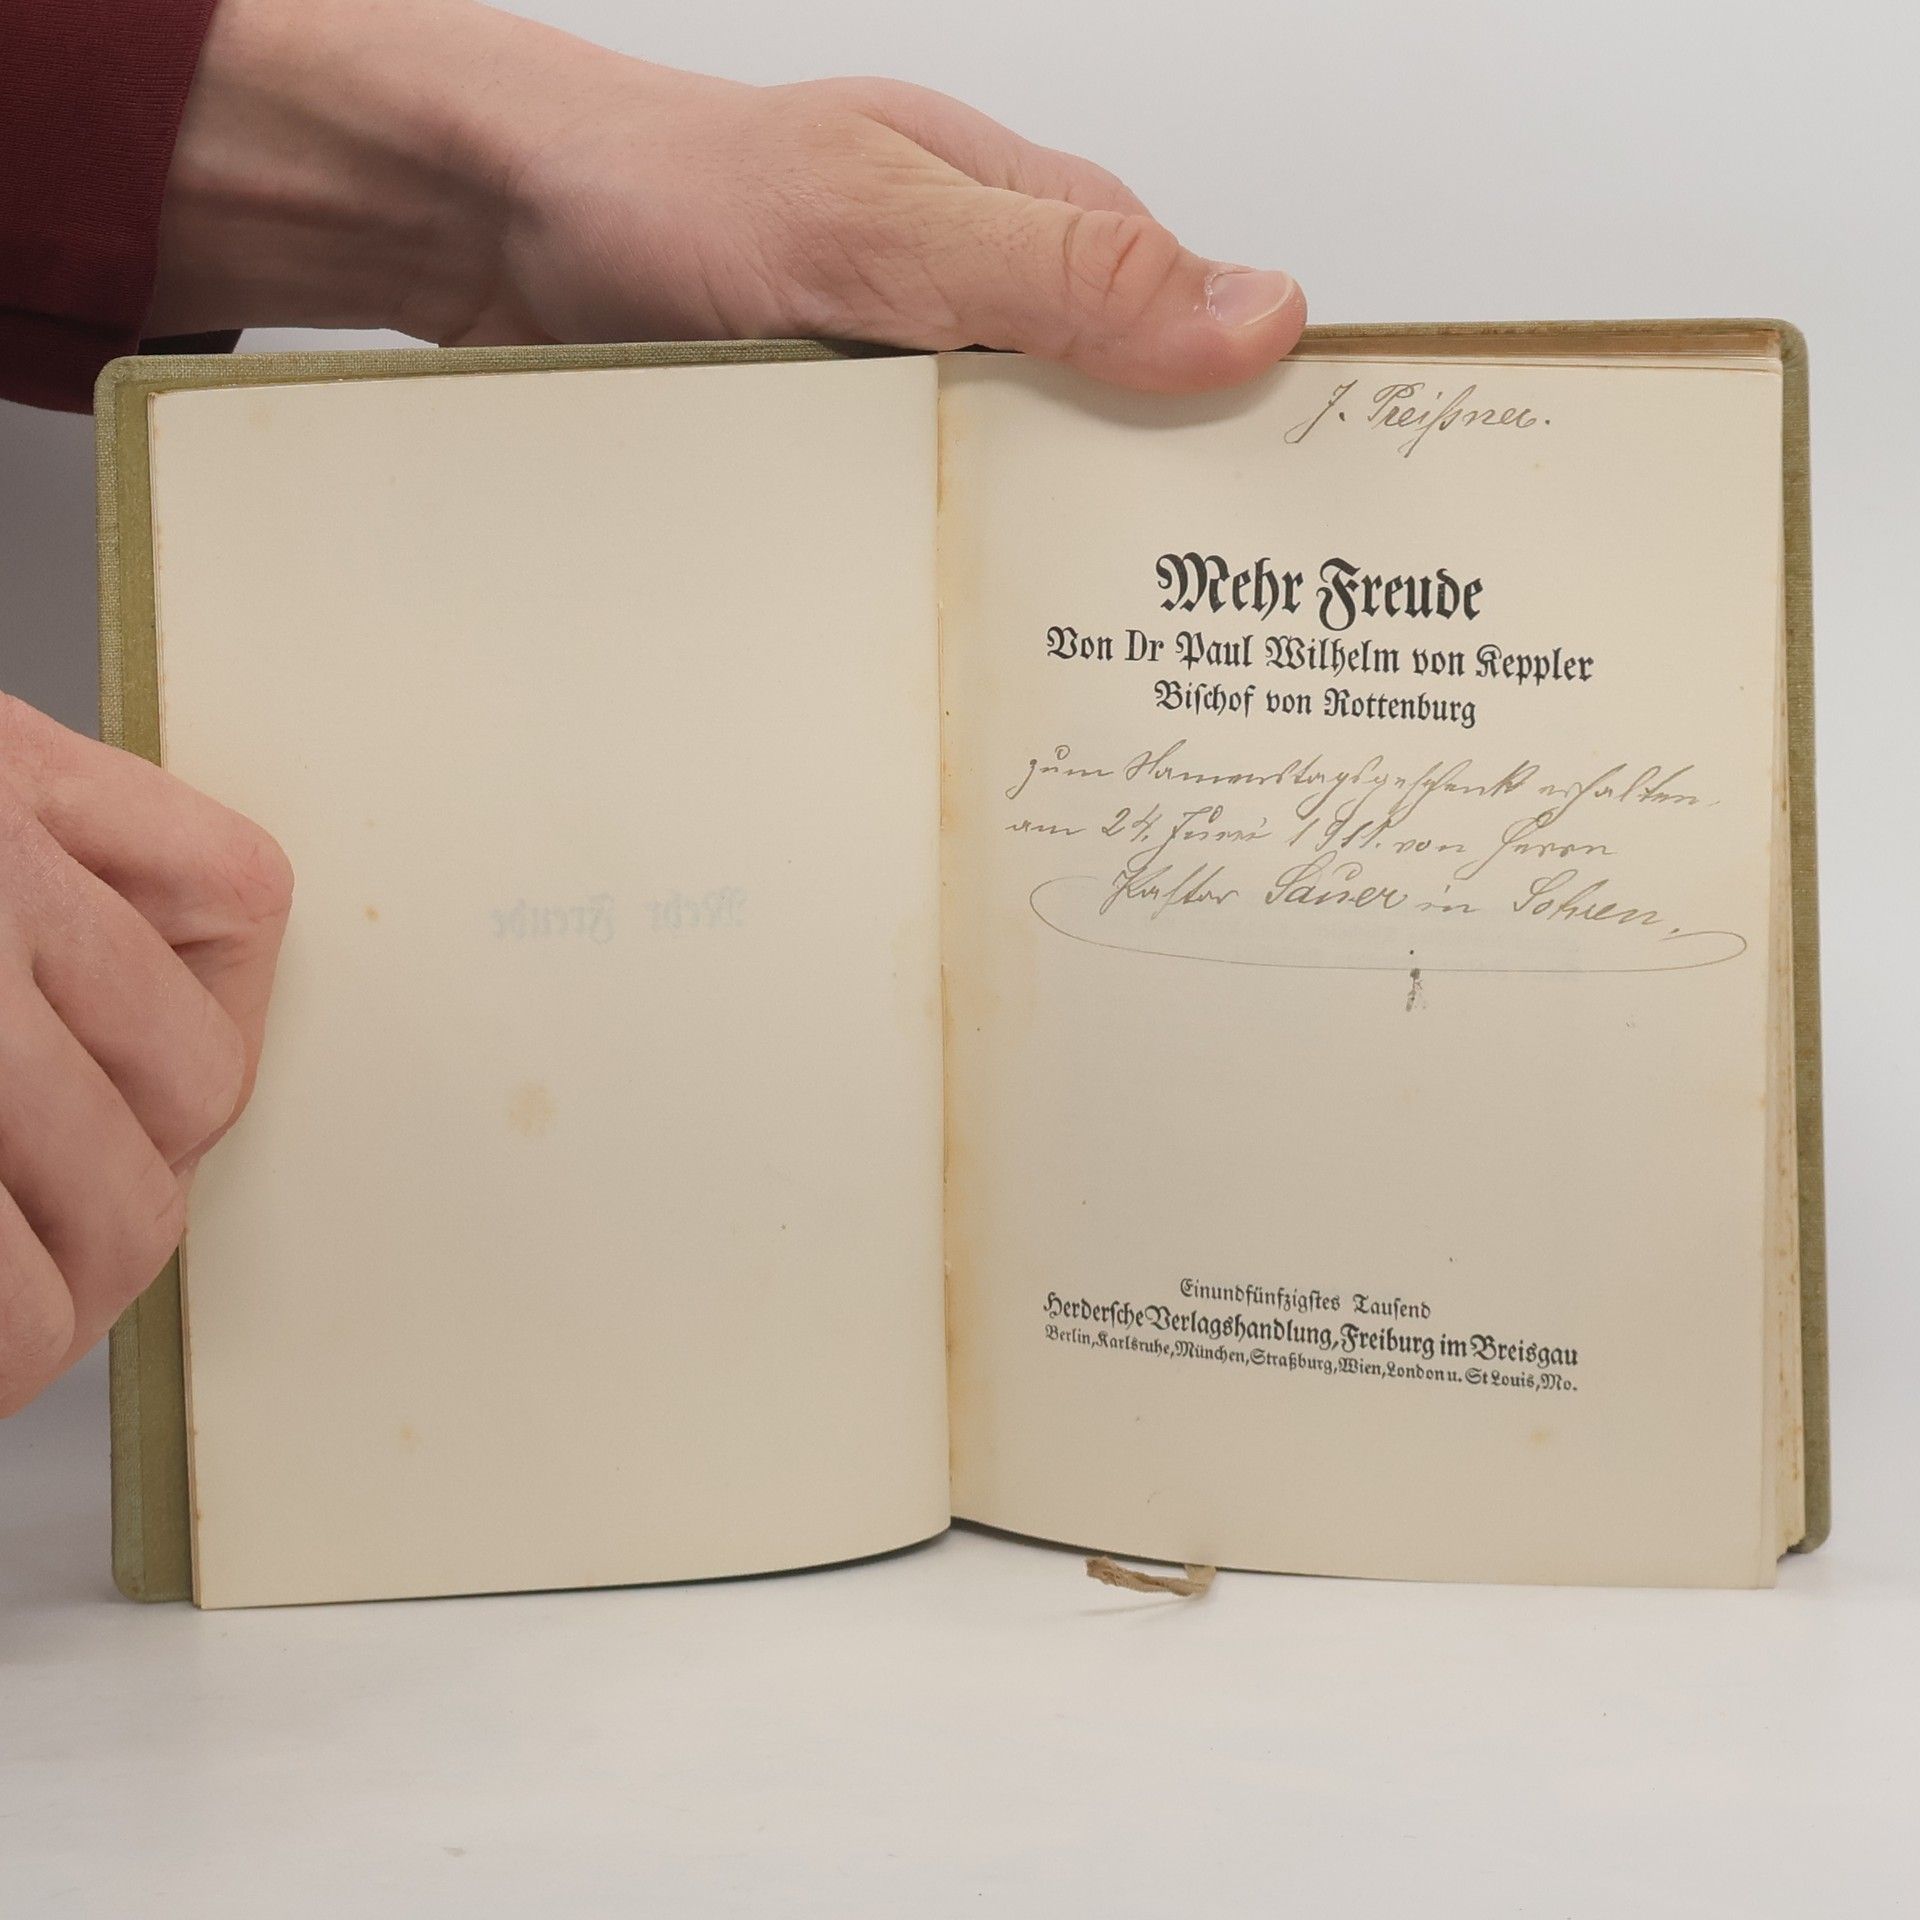 J. Preißner.
Mehr Freude
Von Dr Paul Wilhelm von Keppler
Bischof von Rottenburg
zum Namenstagsgeschenk erhalten
am 24. Juni 1911. von Herrn
Pastor Sauer in Sohren.
Einundfünfzigstes Tausend
Herdersche Verlagshandlung, Freiburg im Breisgau
Berlin, Karlsruhe, München, Straßburg, Wien, London u. St Louis, Mo.
Mehr Freude